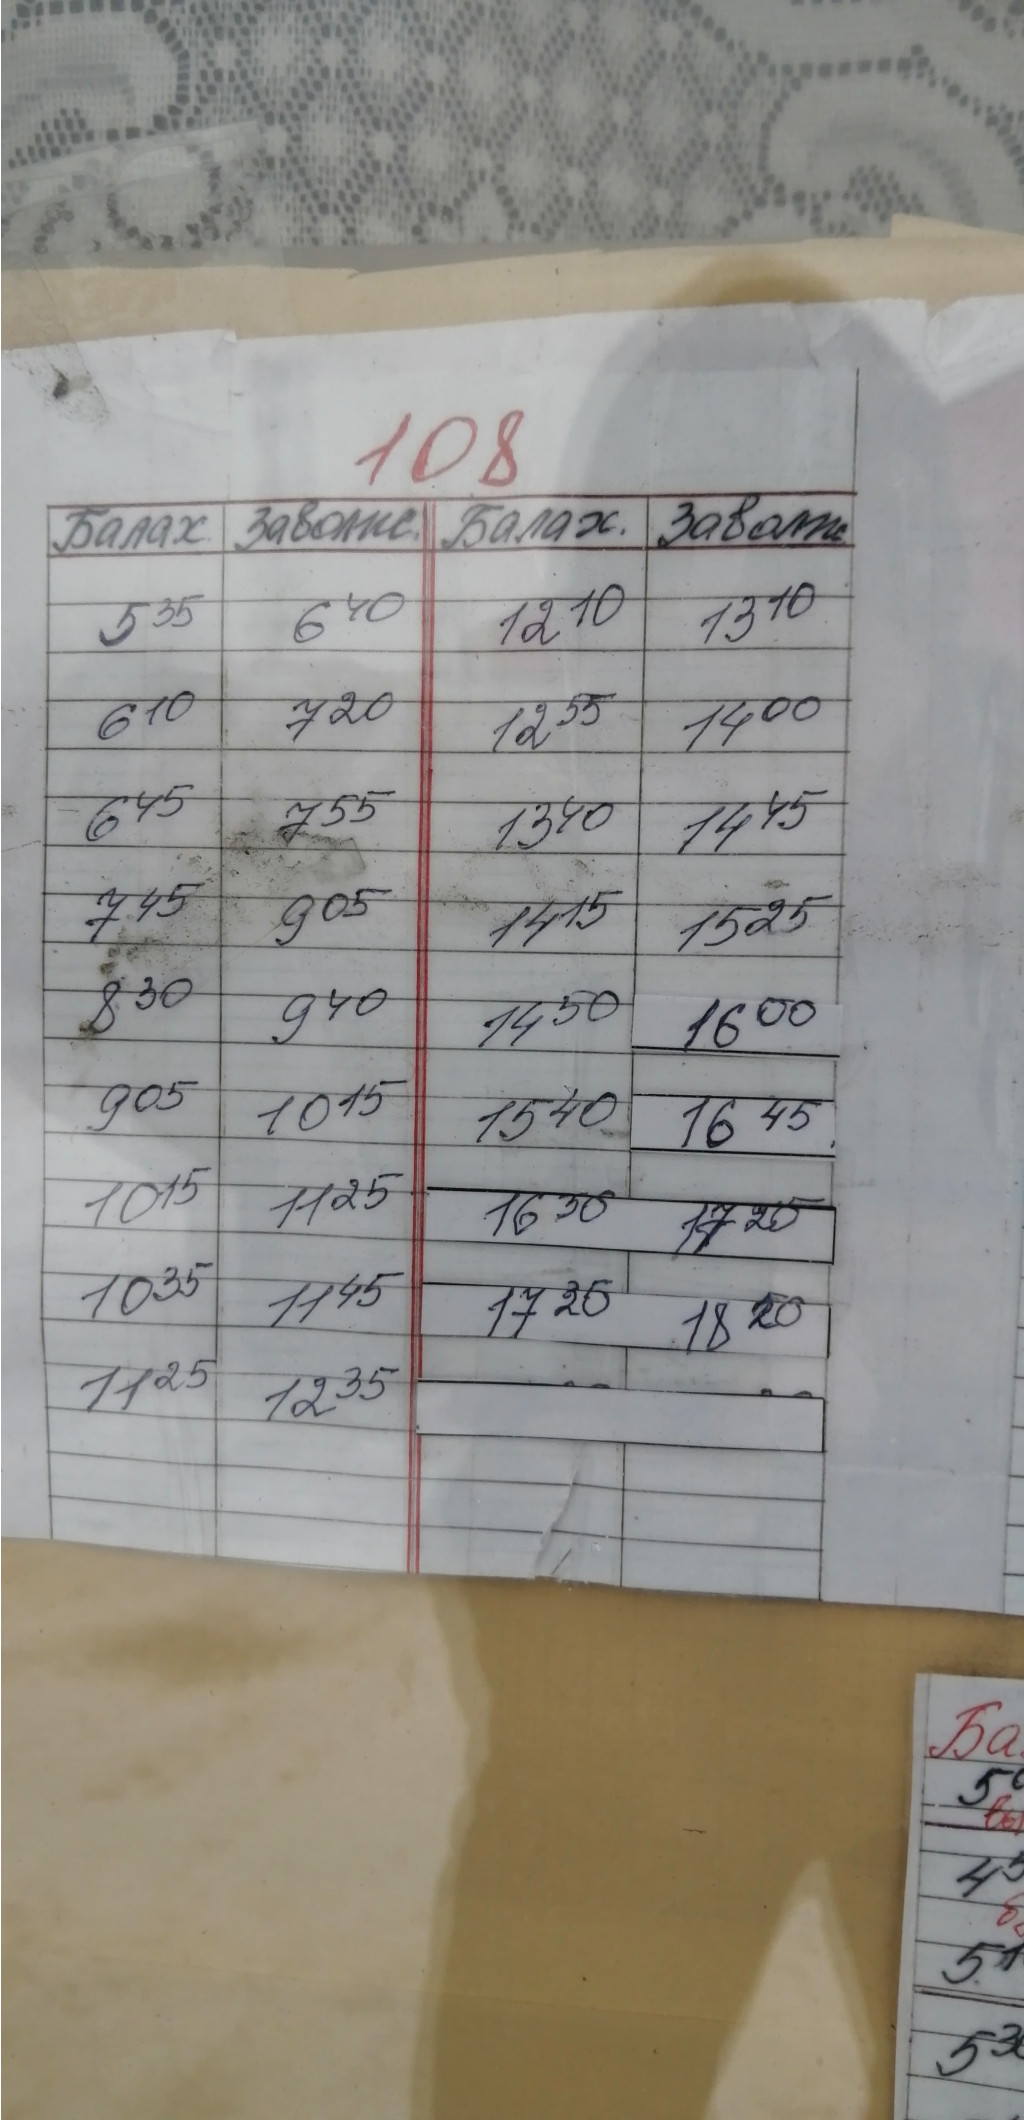 108
Балах. Заволж. Балах. Заволж
5 35 6 40 12 10 13 10
6 10 7 20 12 55 14 00
6 45 7 55 13 40 14 45
7 45 9 05 14 15 15 25
8 30 9 40 14 50 16 00
9 05 10 15 15 40 16 45
10 15 11 25 16 30 17 20
10 35 11 45 17 20 18 20
11 25 12 35
Ба
5
вы
4 5
5 1
5 30